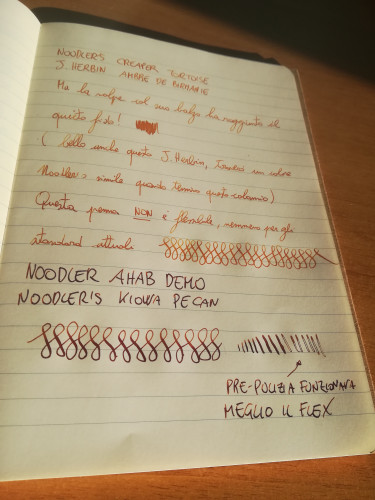 NOODLER'S CREAPER TORTOISE
J. HERBIN AMBRE DE BIRMANIE
Ma la volpe col suo balzo ha raggiunto il
quieto fido!
( bello anche questo J. Herbin, un
Noodler's simile quando termino questo calamaio)
Questa penna NON è flessibile, nemmeno per gli
standard attuali
NOODLER AHAB DEMO
NOODLER'S KIOWA PECAN
PRE-PULIZIA FUNZIONAVA
MEGLIO IL FLEX